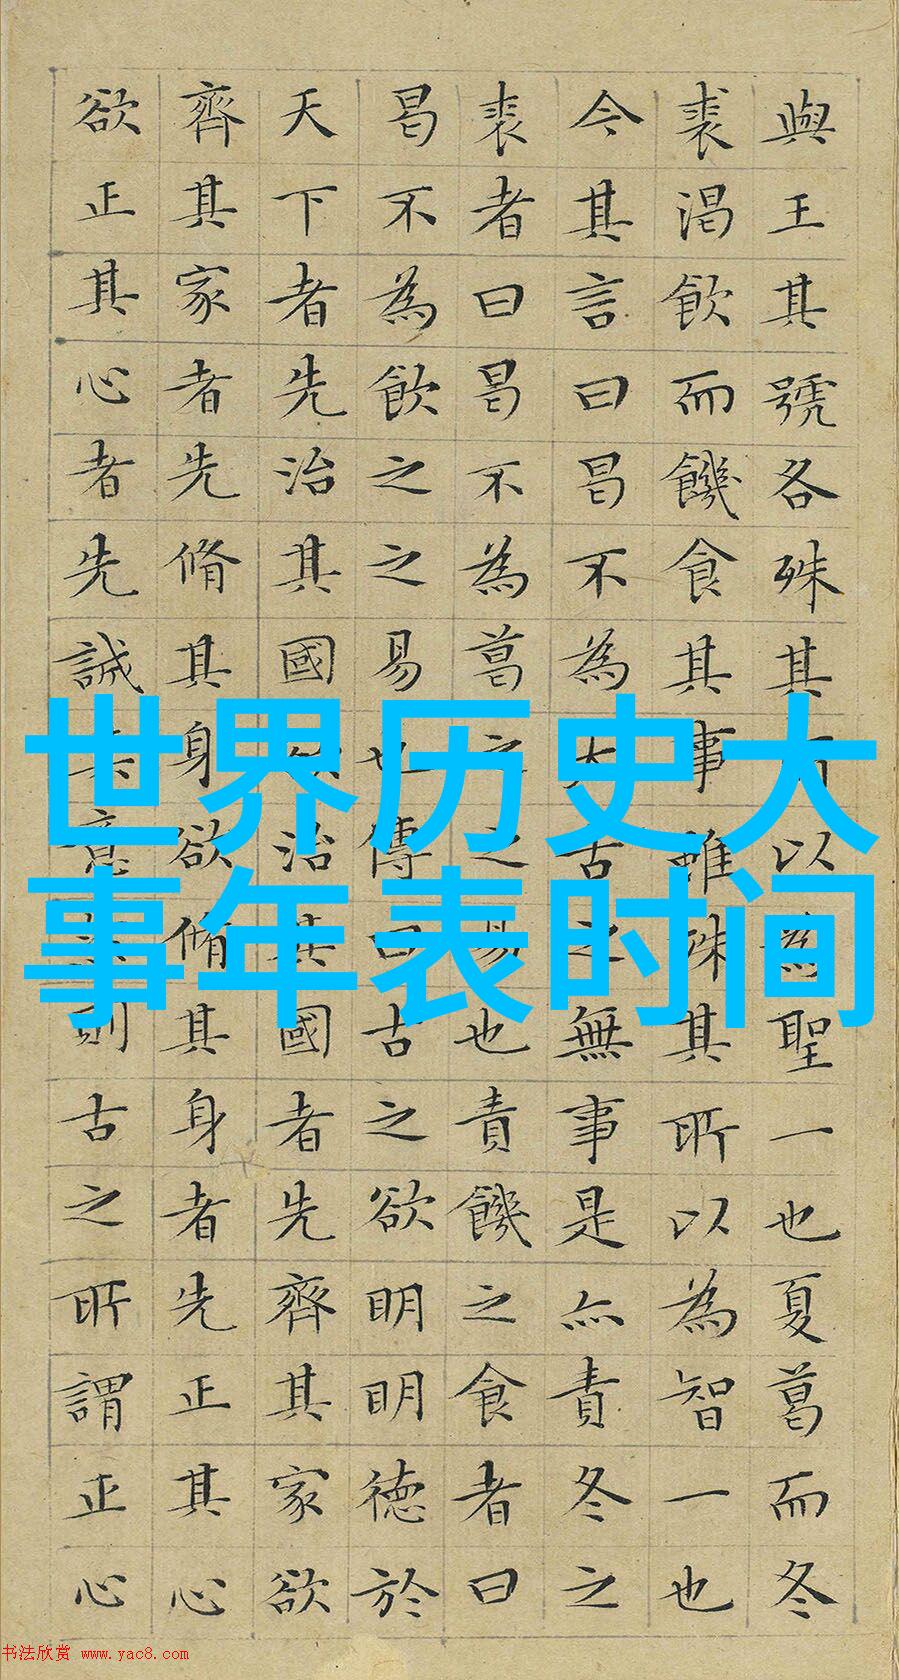 世界历史大
事年表时间
與王其號各殊其以為聖一也夏葛而冬
裘渴飲而饑食其事雖殊其所以為智一也
今其言曰曷不為太古之無事是亦責冬之
裘者曰曷不為葛之之易也責饑之食者曰
曷不為飲之之易也傳曰古之欲明明德於
天下者先治其國欲治其國者先齊其家欲
齊其家者先脩其身欲脩其身者先正其心
欲正其心者先誠其意則古之所謂正心
书法欣赏 www.yac8.com